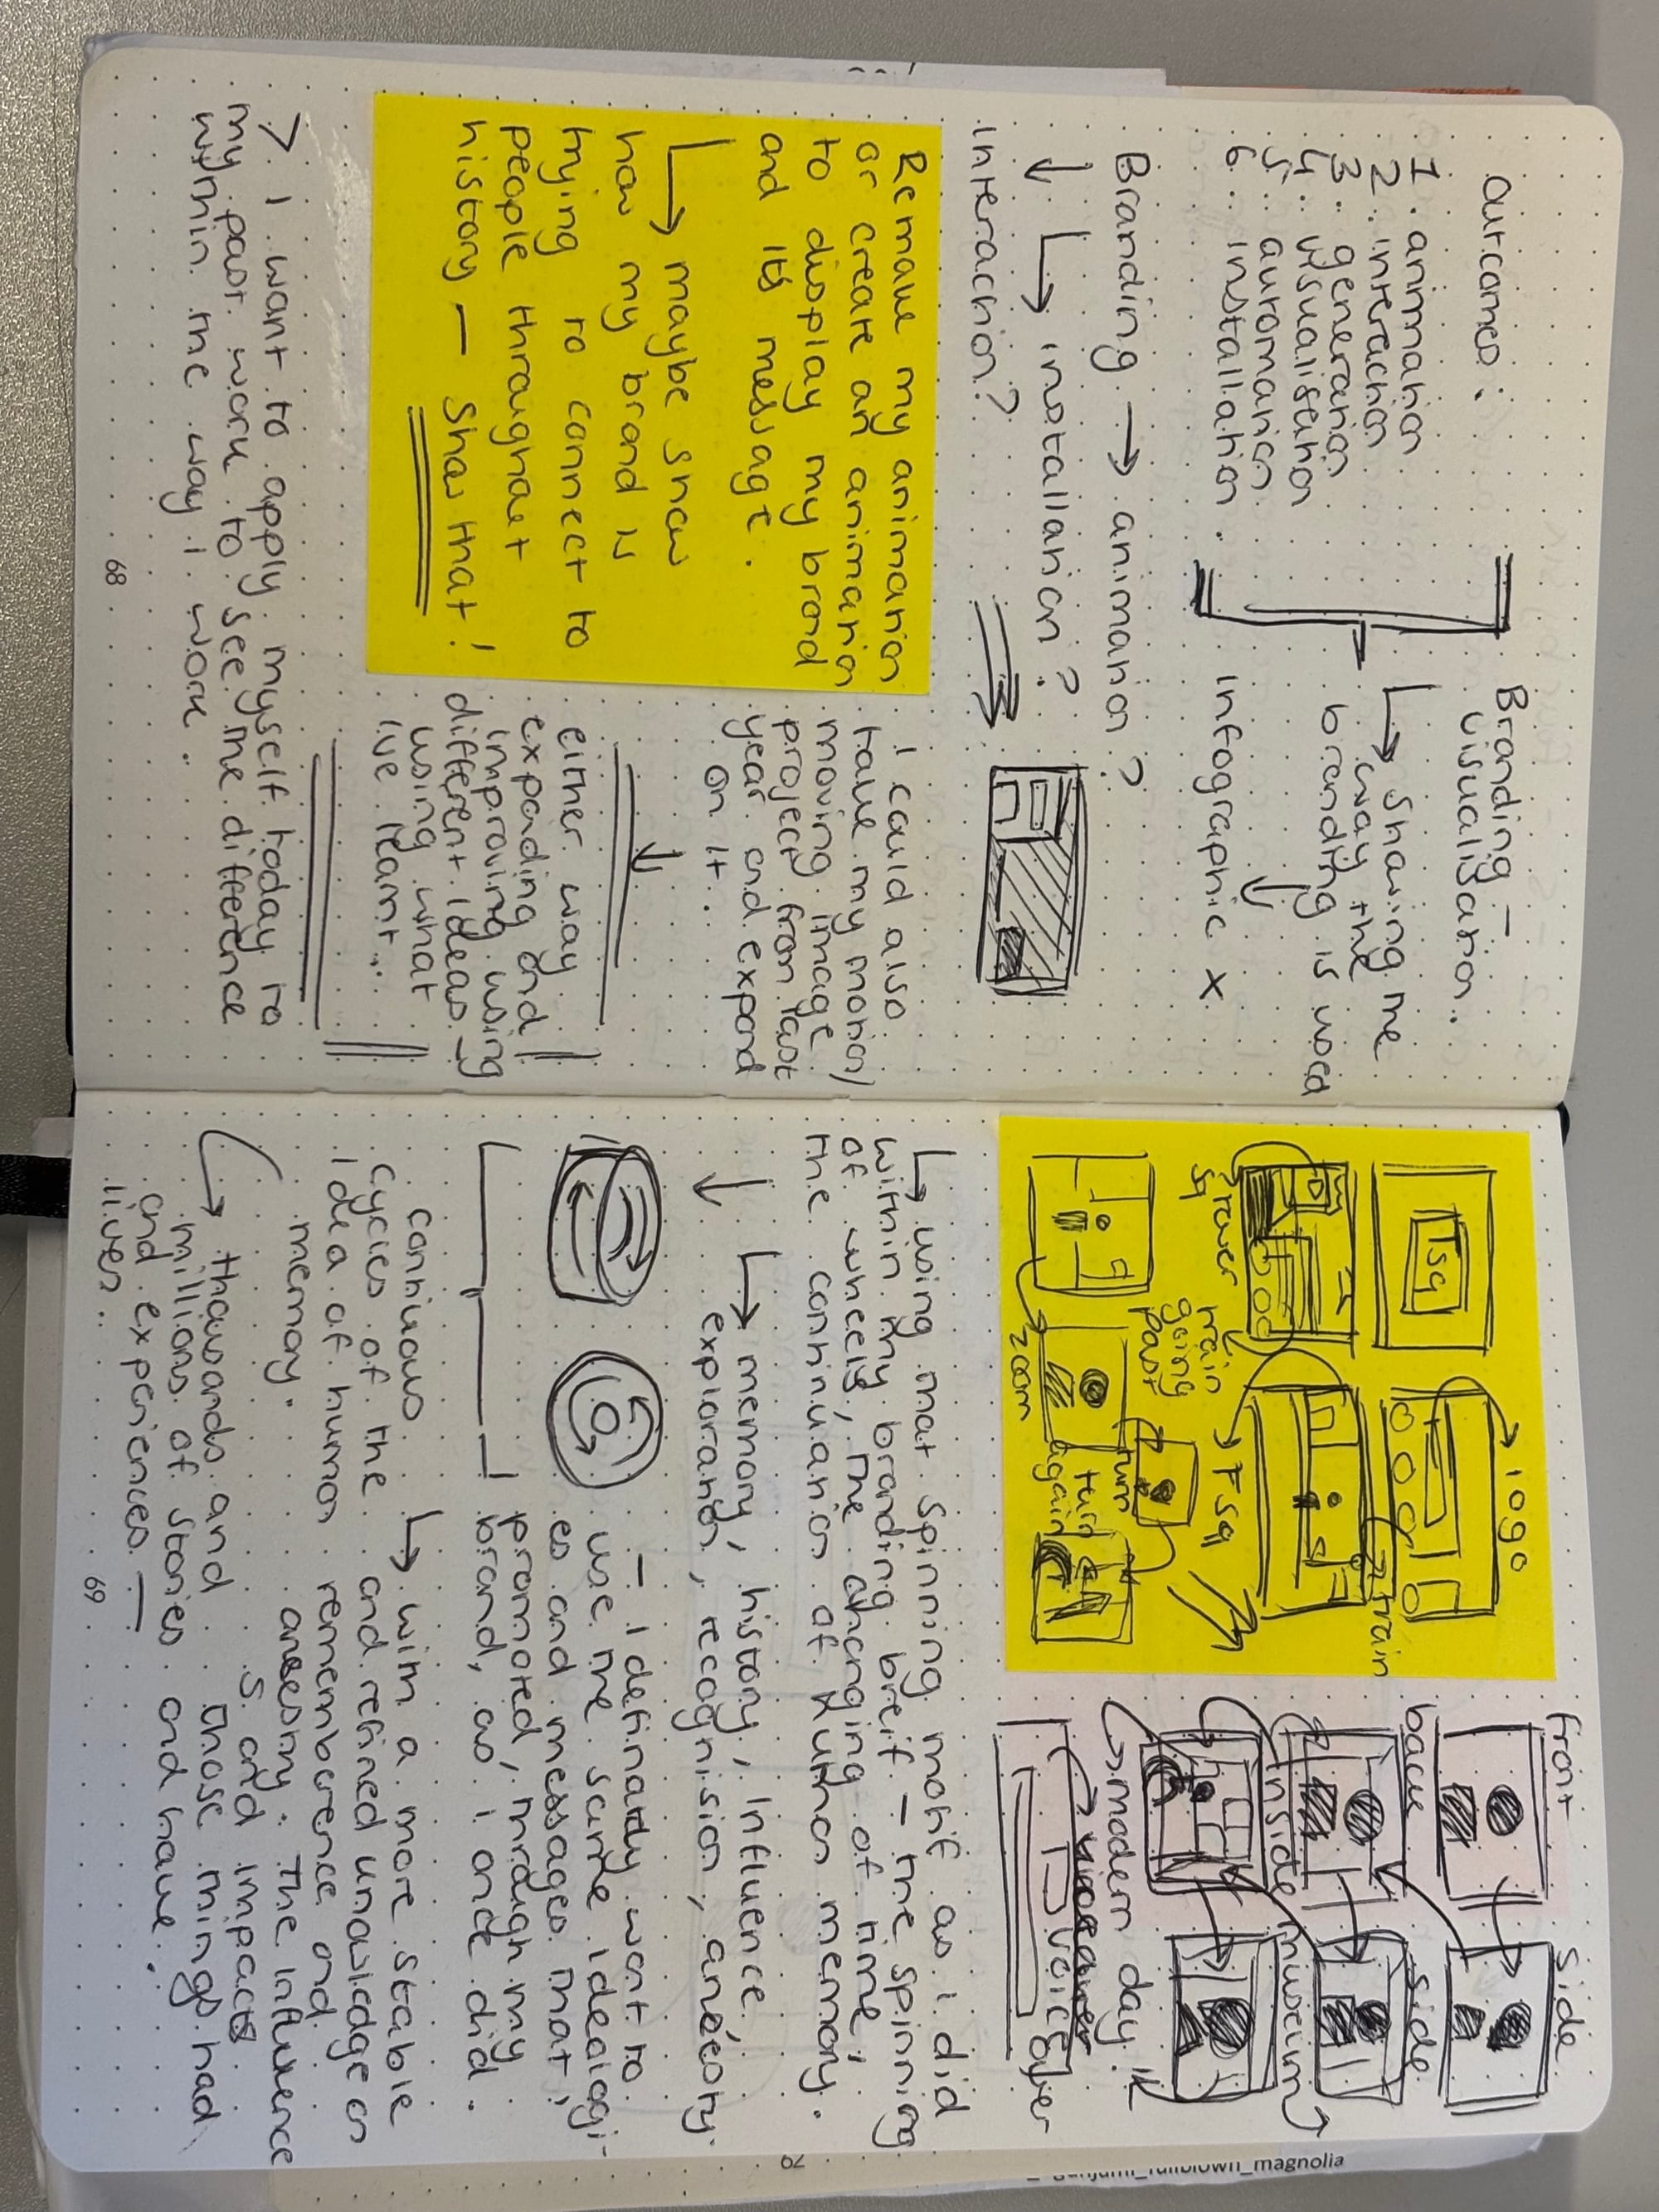 Outcomes:
1. animation
2. interaction
3. generation
4. visualisation
5. automation
6. installation.
Branding -
visualisation..
showing the
way the
branding is used
infographic x
Branding → animation?
↓ ↳ installation?
interaction?
Remake my animation
or create an animation
to display my brand
and its message.
↳ maybe show
how my brand is
trying to connect to
people throughout
history — show that!
I could also
take my motion/
moving image
project from last
year and expand
on it..
either way
expanding and
improving using
different ideas
using what
ive learnt...
> I want to apply myself today to
my past work to see the difference
within the way I work.
68
Tsq
logo
train
Trower
sq
train
going
past
Tsq
zoom
turn
turn
again
front
side
back
side
inside museum
modern day
voiceover
↳ using that spinning motif as i did
within my branding breif - the spinning
of wheels, the changing of time,
the continuation of human memory.
↓ ↳ memory, history, influence,
exploration, recognision, ancestry.
- I definatly want to
use the same ideologi-
es and messages that i
promoted, through my
brand, as i once did.
continuous
cycles of the
idea of human
memory.
↳ with a more stable
and refined knowledge on
rememberence and
ancestry. The influence
s and impacts
those things had
and have.
↳ thousands and
millions of stories
and experiences —
lives..
69
70
fullblown_magnolia